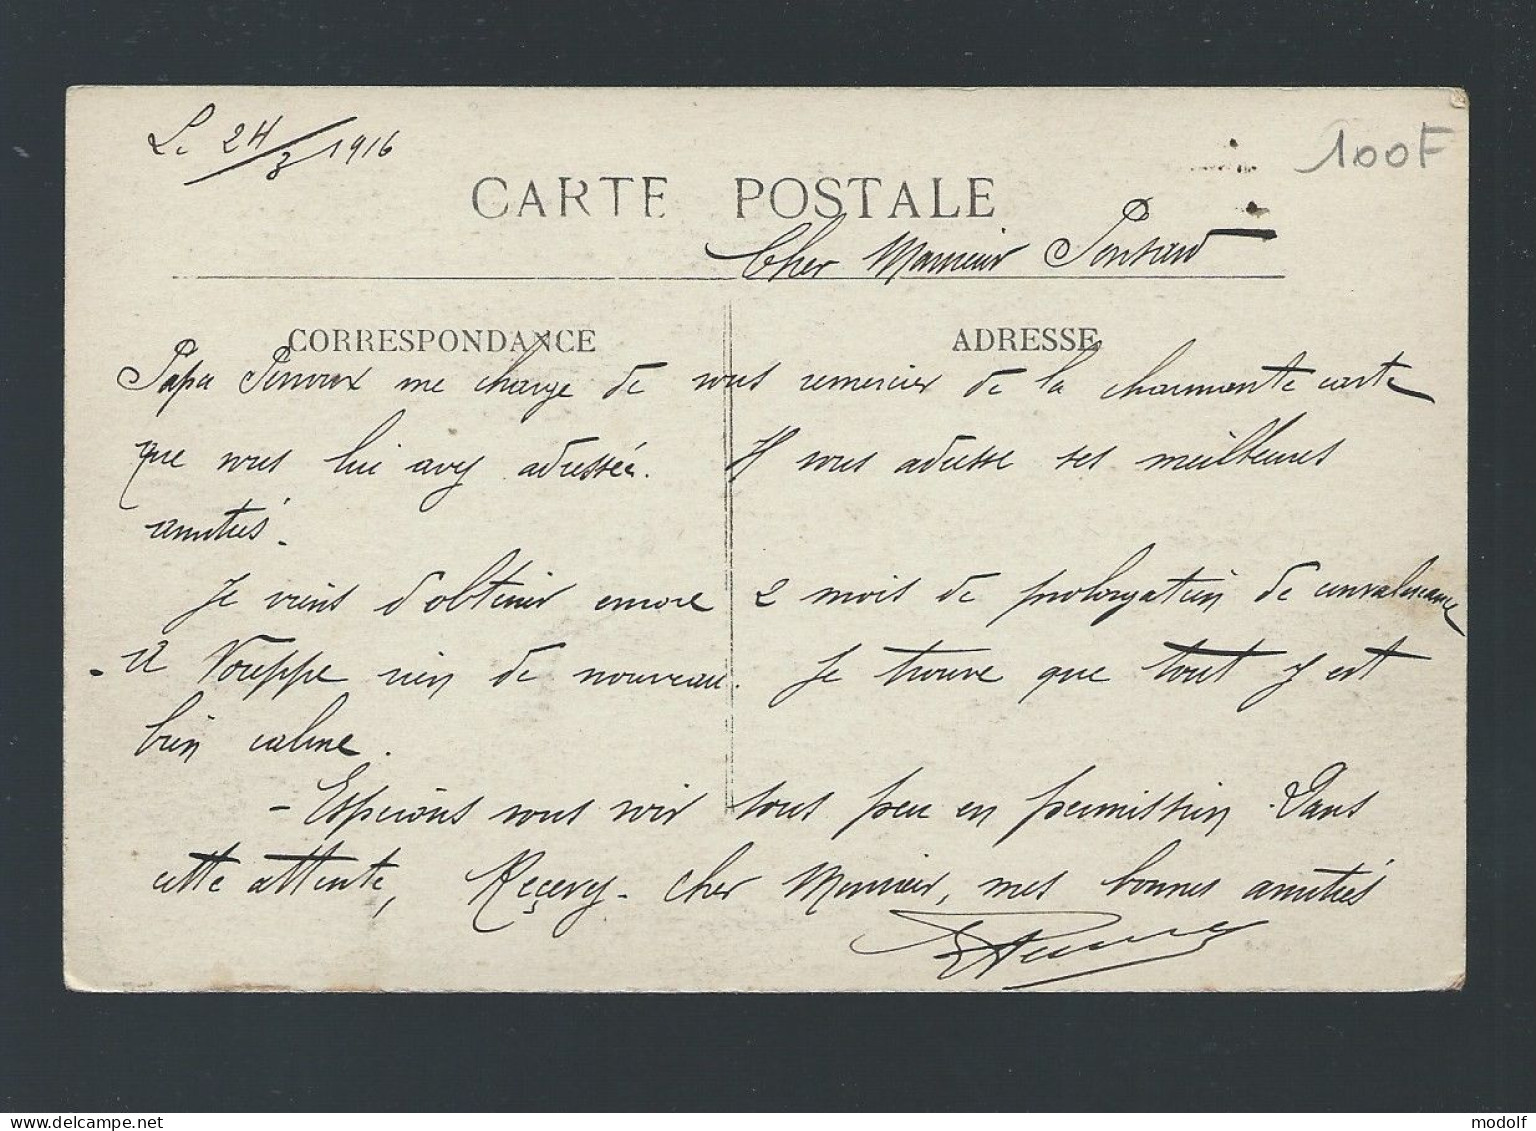 Le 24/3 1916
100F
CARTE POSTALE
Cher Monsieur Ponsard
CORRESPONDANCE ADRESSE
Papa Perroux me charge de vous remercier de la charmante carte
que vous lui avez adressée. Il vous adresse ses meilleures
amitiés.
Je viens d'obtenir encore 2 mois de prolongation de convalescence
A Voreppe rien de nouveau. Je trouve que tout y est
bien calme.
- Espérons vous voir sous peu en permission. Dans
cette attente, Reçevez - cher Monsieur, mes bonnes amitiés
www.delcampe.net
modolf